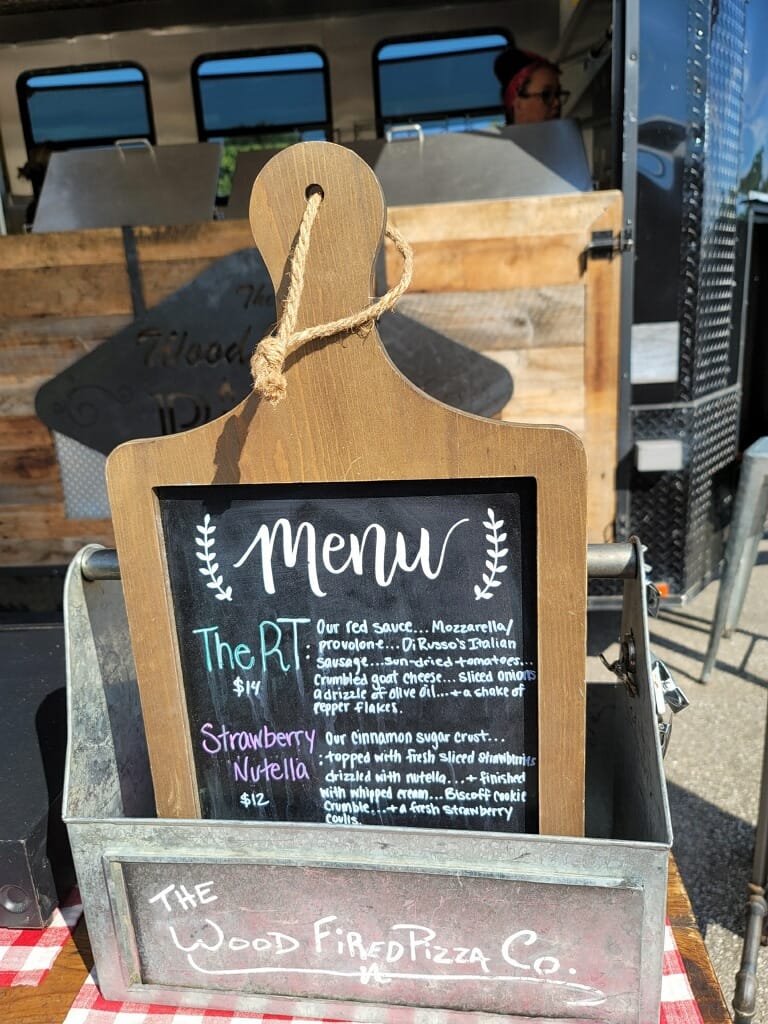 The
Wood
Pi
Menu
The RT:
$14
Our red sauce... Mozzarella/
provolone... DiRusso's Italian
sausage... sun-dried tomatoes...
crumbled goat cheese... sliced onions
a drizzle of olive oil... + a shake of
pepper flakes.
Strawberry
Nutella
$12
Our cinnamon sugar crust...
: topped with fresh sliced strawberries
drizzled with nutella... + finished
with whipped cream... Biscoff cookie
crumble... + a fresh strawberry
coulis.
THE
WOOD FIRED PIZZA CO.